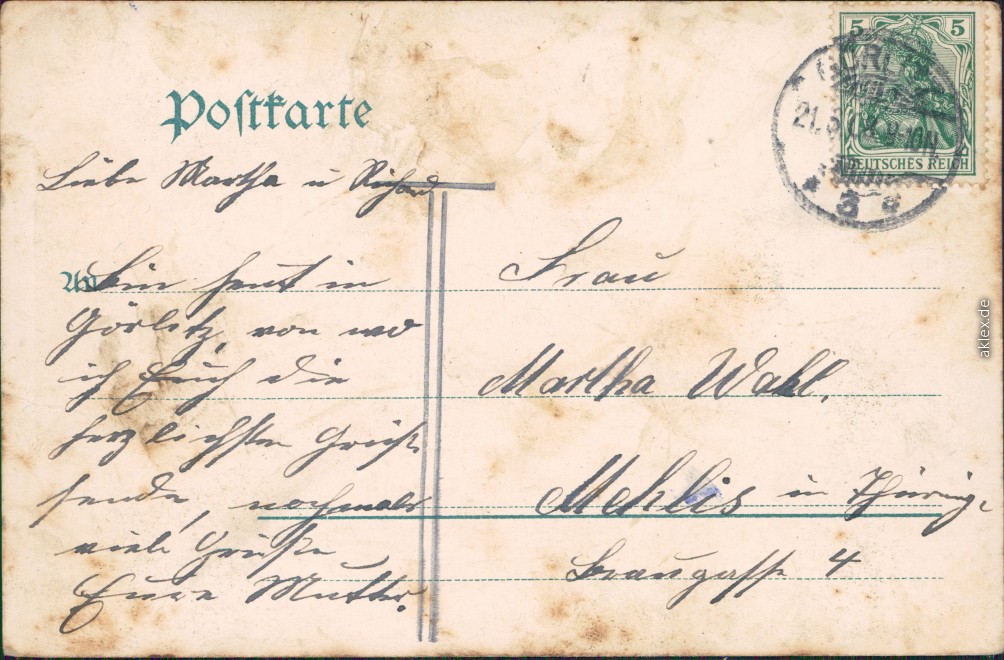 Postkarte
5 5
DEUTSCHES REICH
GÖRLITZ
21.5. 8-10N
3
Liebe Martha u Richard
An
Bin heut in
Görlitz, von wo
ich Euch die
herzlichsten Grüße
sende, nochmals
viele Grüße
Eure Mutter.
Frau
Martha Wahl.
Mehlis in Thüring.
Braugasse 4
aklex.de